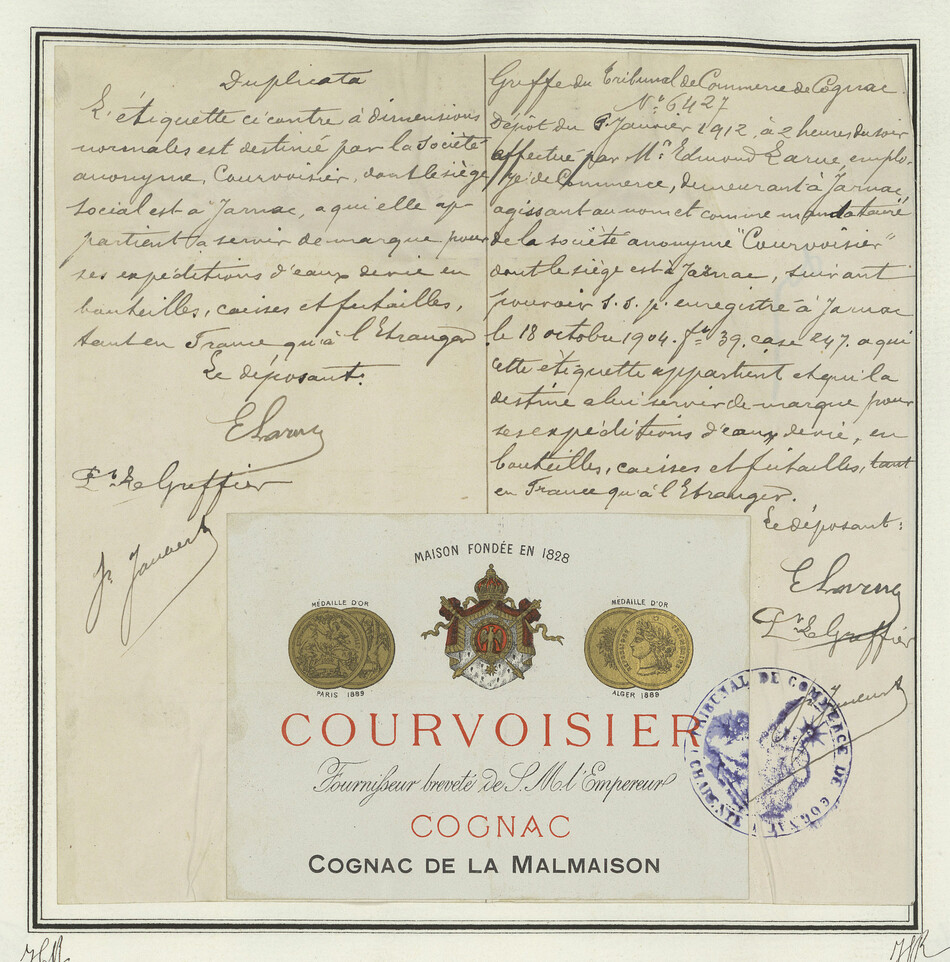 Duplicata
L'étiquette ci contre à dimensions
normales est destinée par la Société
anonyme, Courvoisier, dont le siège
social est à Jarnac, a qui elle ap-
partient a servir de marque pour
ses expéditions d'eaux de vie en
bouteilles, caisses et futailles,
tant en France qu'à l'Etranger.
Le déposant:
ELarue
Pr. Le Greffier
Greffe du Tribunal de Commerce de Cognac.
No. 6427
Dépôt du Janvier 1912, à 2 heures du soir
effectué par Mr. Edmond Larue emplo-
yé de Commerce, demeurant à Jarnac
agissant au nom et comme mandataire
de la société anonyme "Courvoisier"
dont le siège est à Jarnac, suivant
pouvoir s. s. p. enregistré à Jarnac
le 18 octobre 1904. fo 39. case 247. a qui
cette étiquette appartient et qui la
destine a lui servir de marque pour
ses expéditions d'eaux de vie, en
bouteilles, caisses et futailles, tant
en France qu'à l'Etranger.
Le déposant:
ELarue
Pr. Le Greffier
MAISON FONDÉE EN 1828
MÉDAILLE D'OR
PARIS 1889
MÉDAILLE D'OR
ALGER 1889
COURVOISIER
Fournisseur breveté de S. M. l'Empereur
COGNAC
COGNAC DE LA MALMAISON
TRIBUNAL DE COMMERCE DE COGNAC